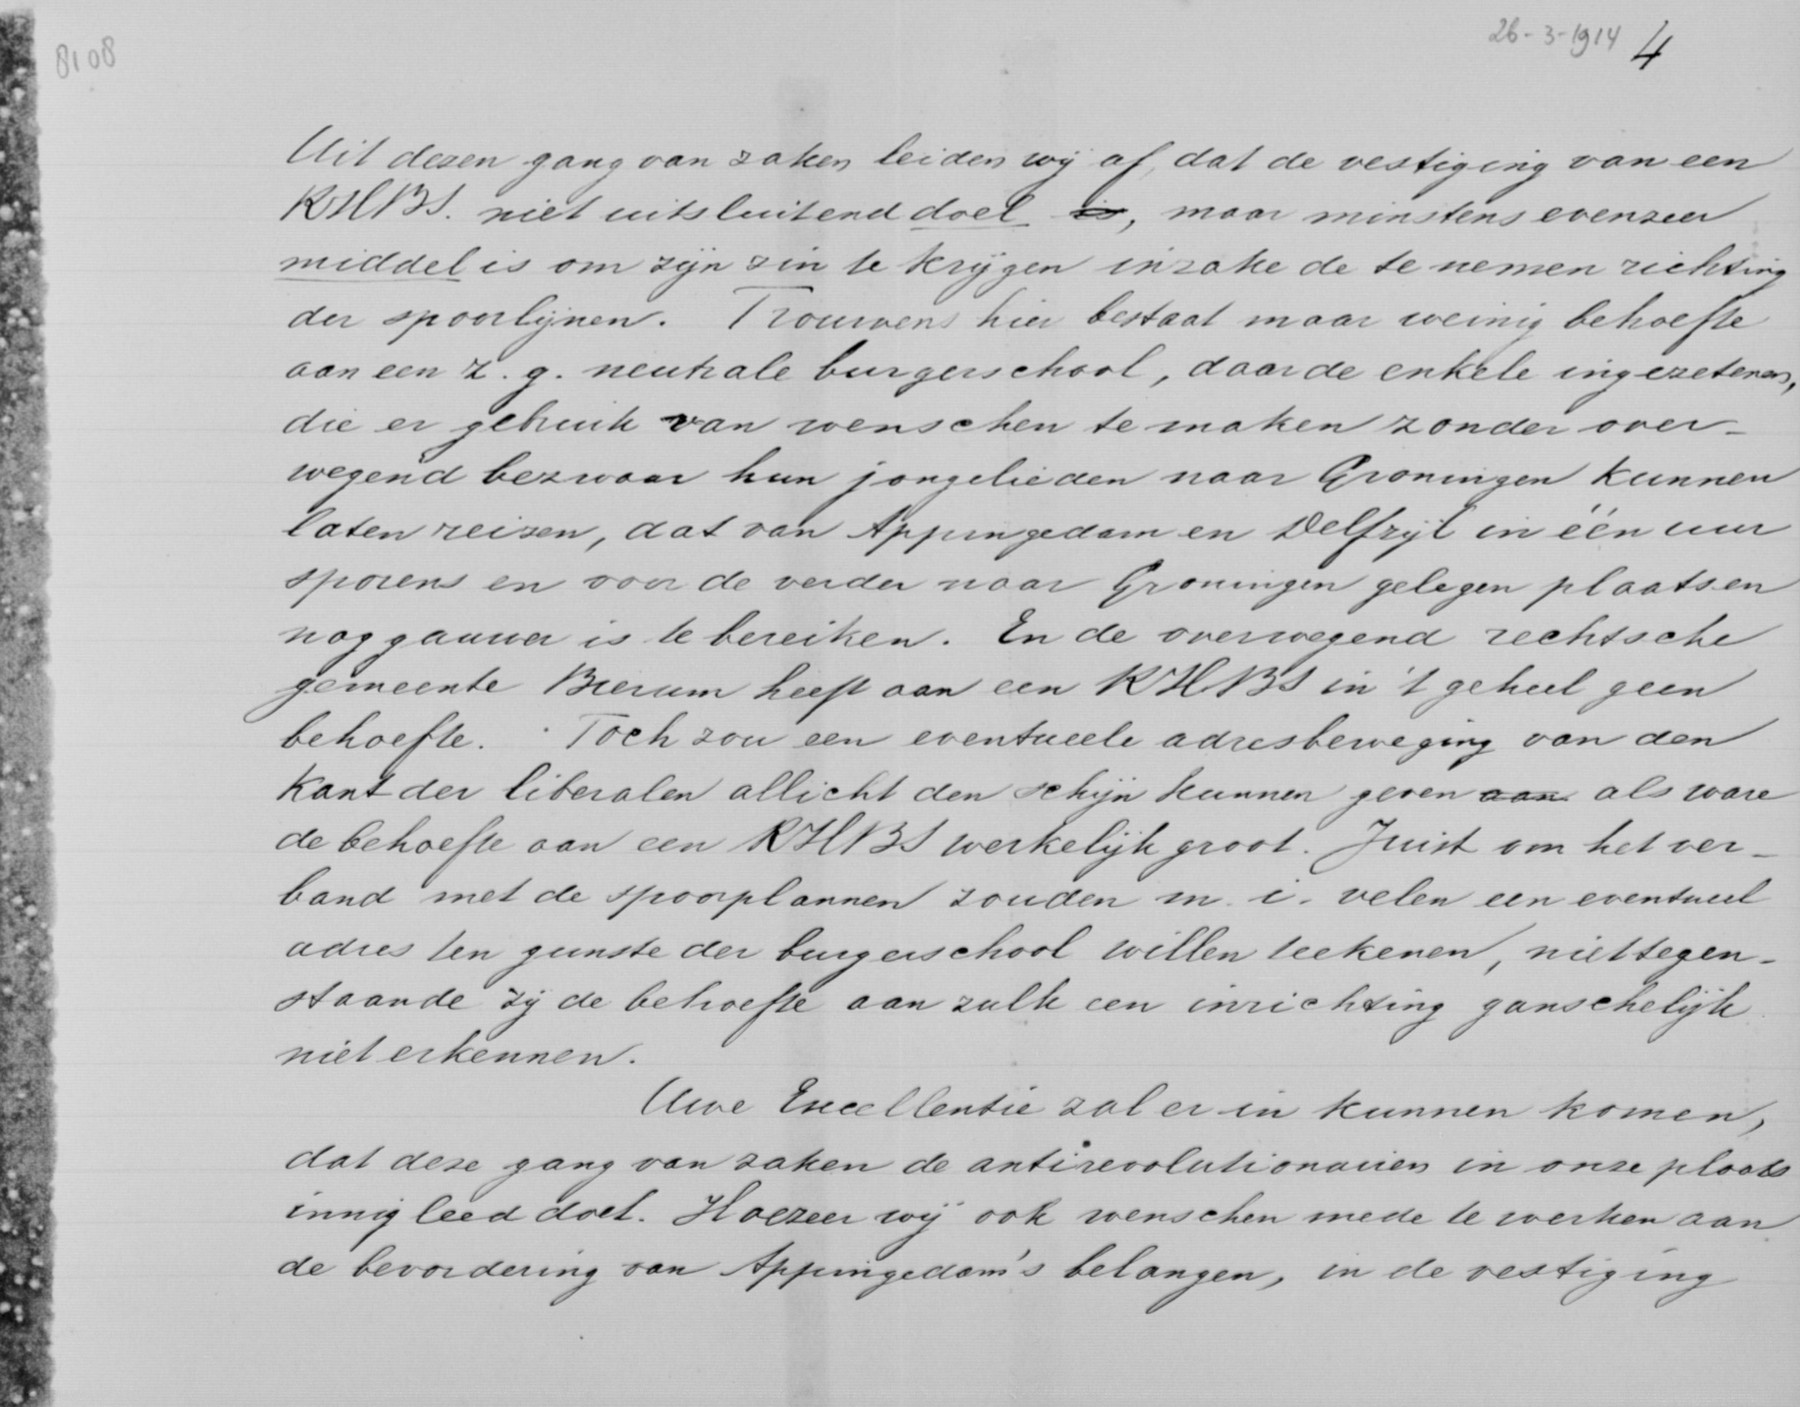 8108
26-3-1914 4
Uit dezen gang van zaken leiden wij af, dat de vestiging van een
RHBS. niet uitsluitend doel is, maar minstens evenzeer
middel is om zijn zin te krijgen inzake de te nemen richting
der spoorlijnen. Trouwens hier bestaat maar weinig behoefte
aan een z.g. neutrale burgerschool, daar de enkele ingezetenen,
die er gebruik van wenschen te maken zonder over-
wegend bezwaar hun jongelieden naar Groningen kunnen
laten reizen, dat van Appingedam en Delfzijl in één uur
sporens en voor de verder naar Groningen gelegen plaatsen
nog gauwer is te bereiken. En de overwegend rechtsche
gemeente Bierum heeft aan een RHBS in 't geheel geen
behoefte. Toch zou een eventueele adresbeweging van den
kant der liberalen allicht den schijn kunnen geven aan als ware
de behoefte aan een RHBS werkelijk groot. Juist om het ver-
band met de spoorplannen zouden m. i. velen een eventueel
adres ten gunste der burgerschool willen teekenen, niettegen-
staande zij de behoefte aan zulk een inrichting ganschelijk
niet erkennen.
Uwe Excellentie zal er in kunnen komen,
dat deze gang van zaken de antirevolutionairen in onze plaats
innig leed doet. Hoezeer wij ook wenschen mede te werken aan
de bevordering van Appingedam's belangen, in de vestiging